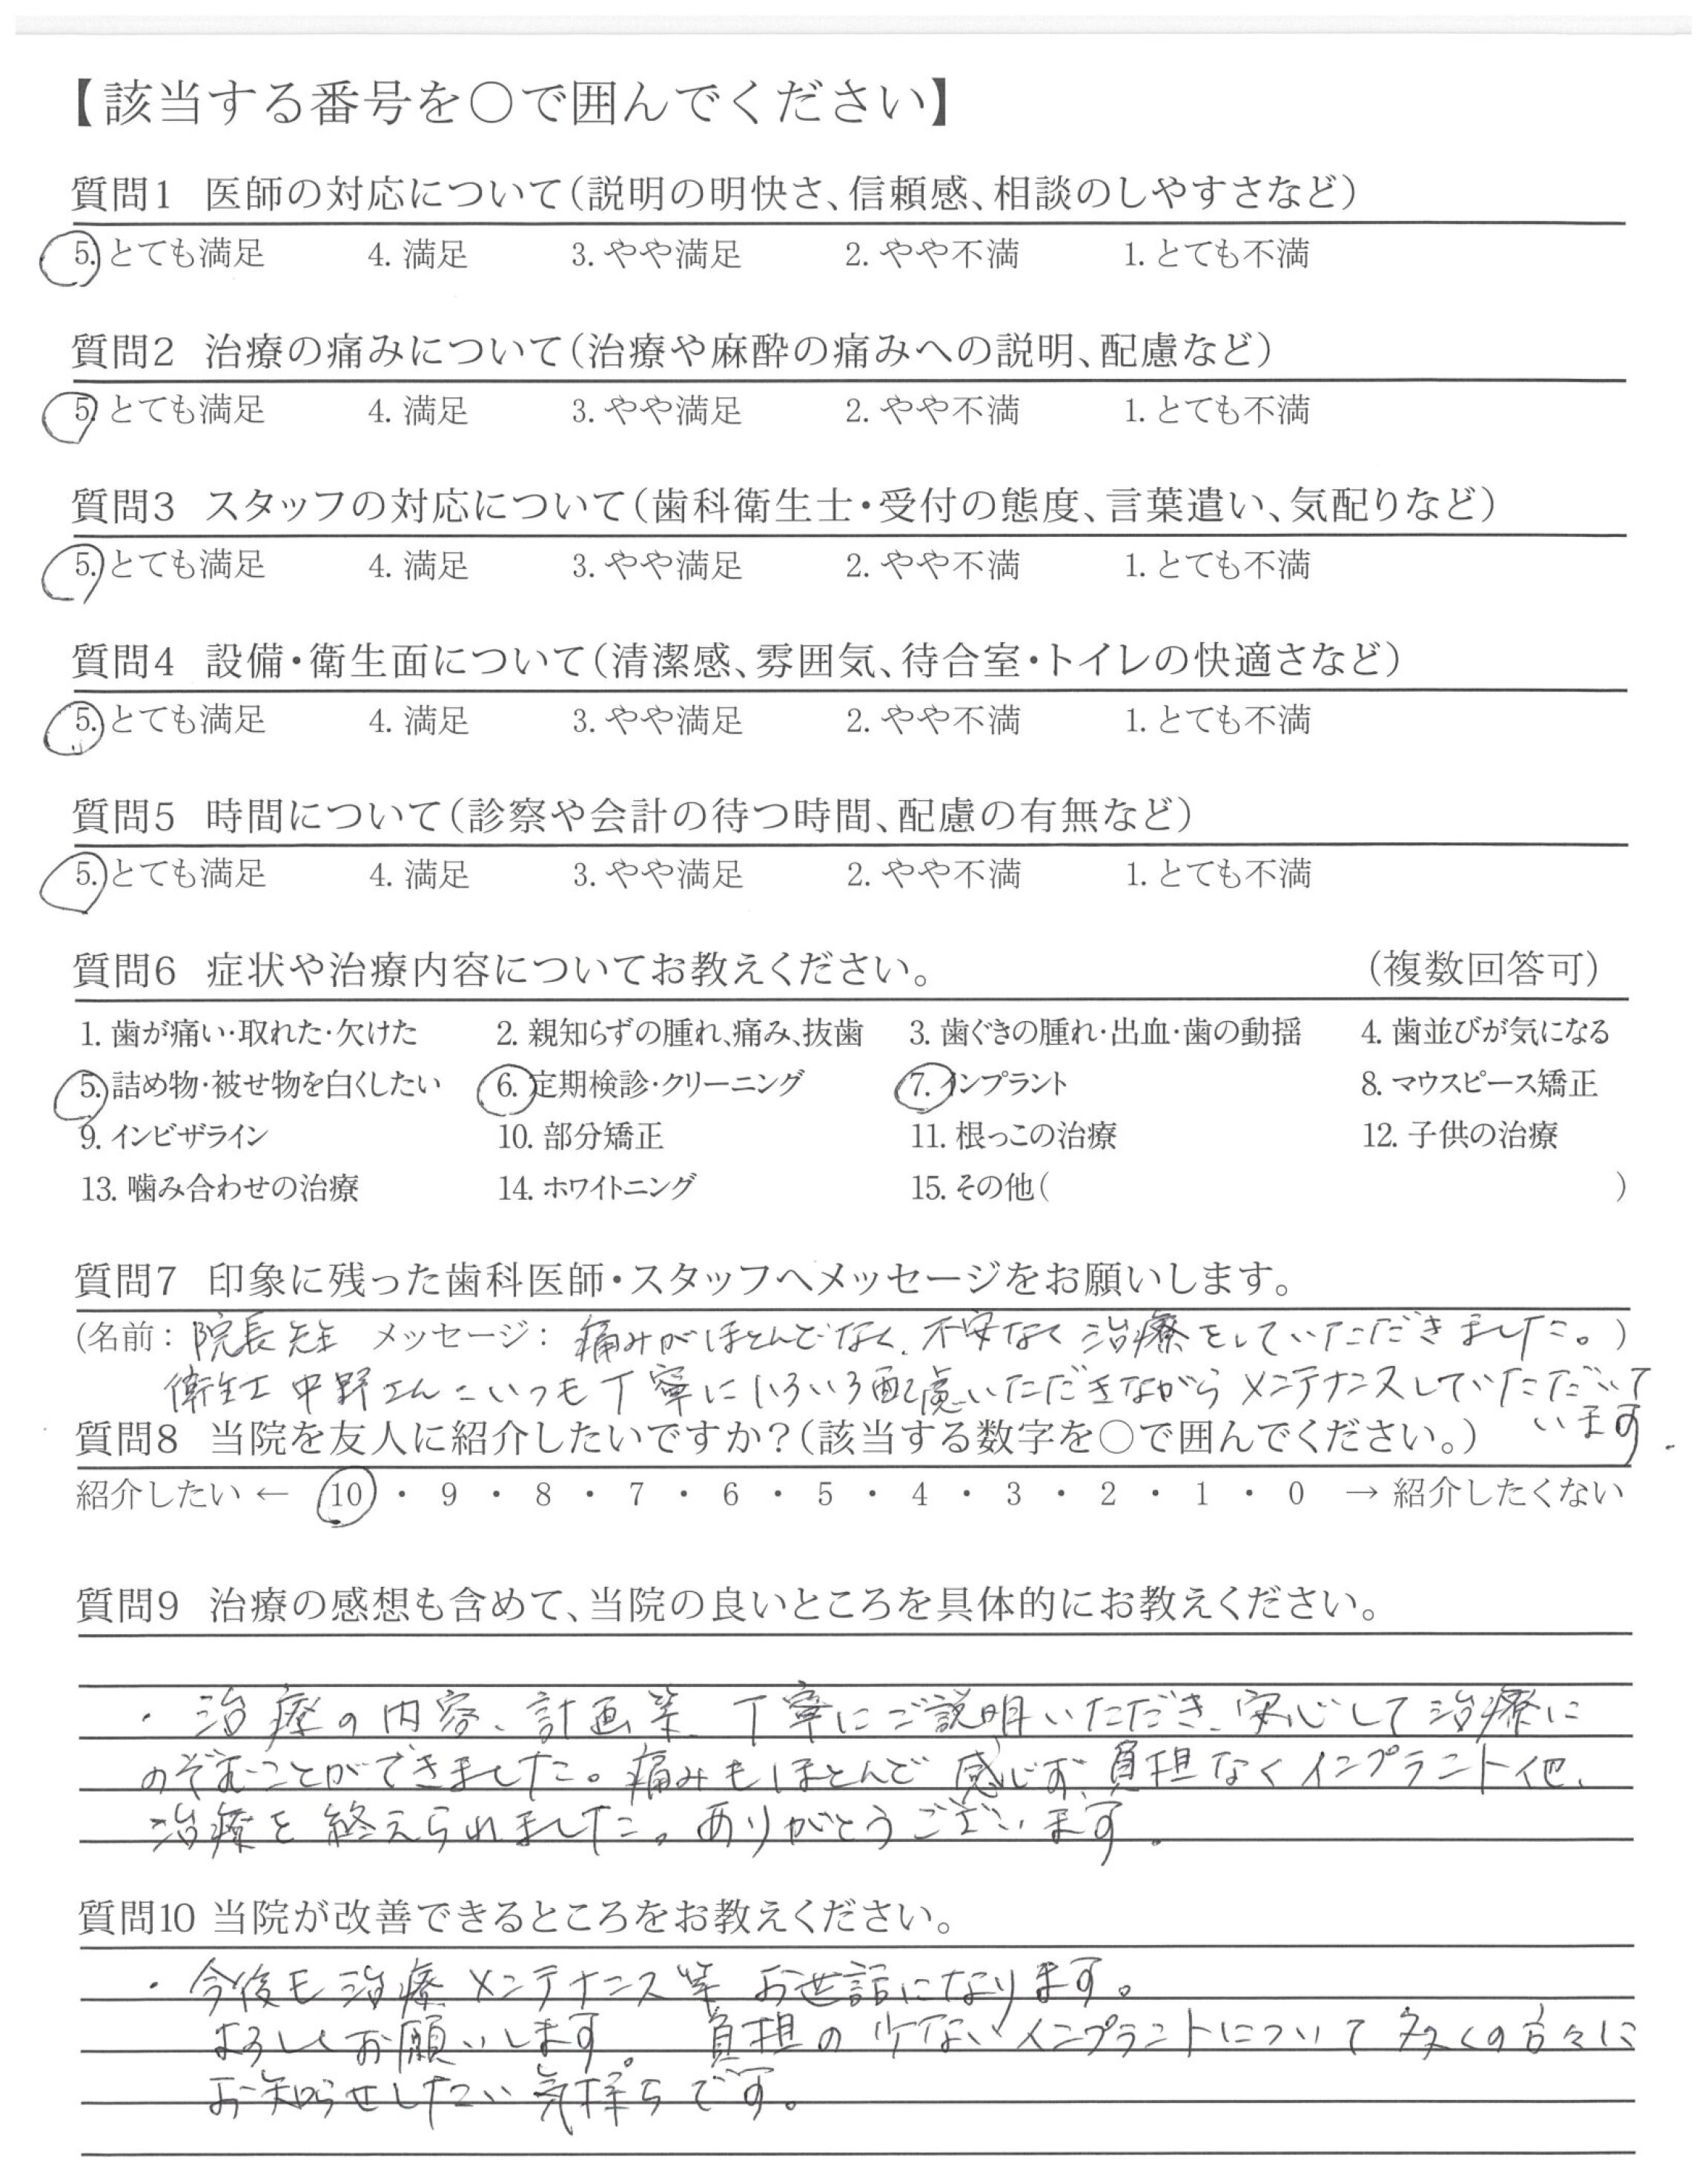 【該当する番号を○で囲んでください】
質問1 医師の対応について(説明の明快さ、信頼感、相談のしやすさなど)
5. とても満足 4. 満足 3. やや満足 2. やや不満 1. とても不満
質問2 治療の痛みについて(治療や麻酔の痛みへの説明、配慮など)
5. とても満足 4. 満足 3. やや満足 2. やや不満 1. とても不満
質問3 スタッフの対応について(歯科衛生士・受付の態度、言葉遣い、気配りなど)
5. とても満足 4. 満足 3. やや満足 2. やや不満 1. とても不満
質問4 設備・衛生面について(清潔感、雰囲気、待合室・トイレの快適さなど)
5. とても満足 4. 満足 3. やや満足 2. やや不満 1. とても不満
質問5 時間について(診察や会計の待つ時間、配慮の有無など)
5. とても満足 4. 満足 3. やや満足 2. やや不満 1. とても不満
質問6 症状や治療内容についてお教えください。 (複数回答可)
1. 歯が痛い・取れた・欠けた 2. 親知らずの腫れ、痛み、抜歯 3. 歯ぐきの腫れ・出血・歯の動揺 4. 歯並びが気になる
5. 詰め物・被せ物を白くしたい 6. 定期検診・クリーニング 7. インプラント 8. マウスピース矯正
9. インビザライン 10. 部分矯正 11. 根っこの治療 12. 子供の治療
13. 噛み合わせの治療 14. ホワイトニング 15. その他( )
質問7 印象に残った歯科医師・スタッフへメッセージをお願いします。
(名前: 院長先生 メッセージ: 痛みがほとんどなく、不安なく治療をしていただきました。)
衛生士 中野さん いつも丁寧にいろいろ配慮いただきながらメンテナンスしていただいて
います。
質問8 当院を友人に紹介したいですか?(該当する数字を○で囲んでください。)
紹介したい ← 10 ・ 9 ・ 8 ・ 7 ・ 6 ・ 5 ・ 4 ・ 3 ・ 2 ・ 1 ・ 0 → 紹介したくない
質問9 治療の感想も含めて、当院の良いところを具体的にお教えください。
・治療の内容、計画等、丁寧にご説明いただき、安心して治療に
のぞむことができました。痛みもほとんど感じず、負担なくインプラント他、
治療を終えられました。ありがとうございます。
質問10 当院が改善できるところをお教えください。
・今後も治療メンテナンス等お世話になります。
よろしくお願いします。負担の少ないインプラントについて多くの方々に
お知らせしたい気持ちです。